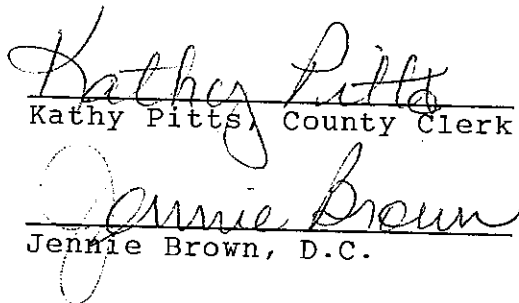 Kathy Pitts
Kathy Pitts, County Clerk
Jennie Brown
Jennie Brown, D.C.